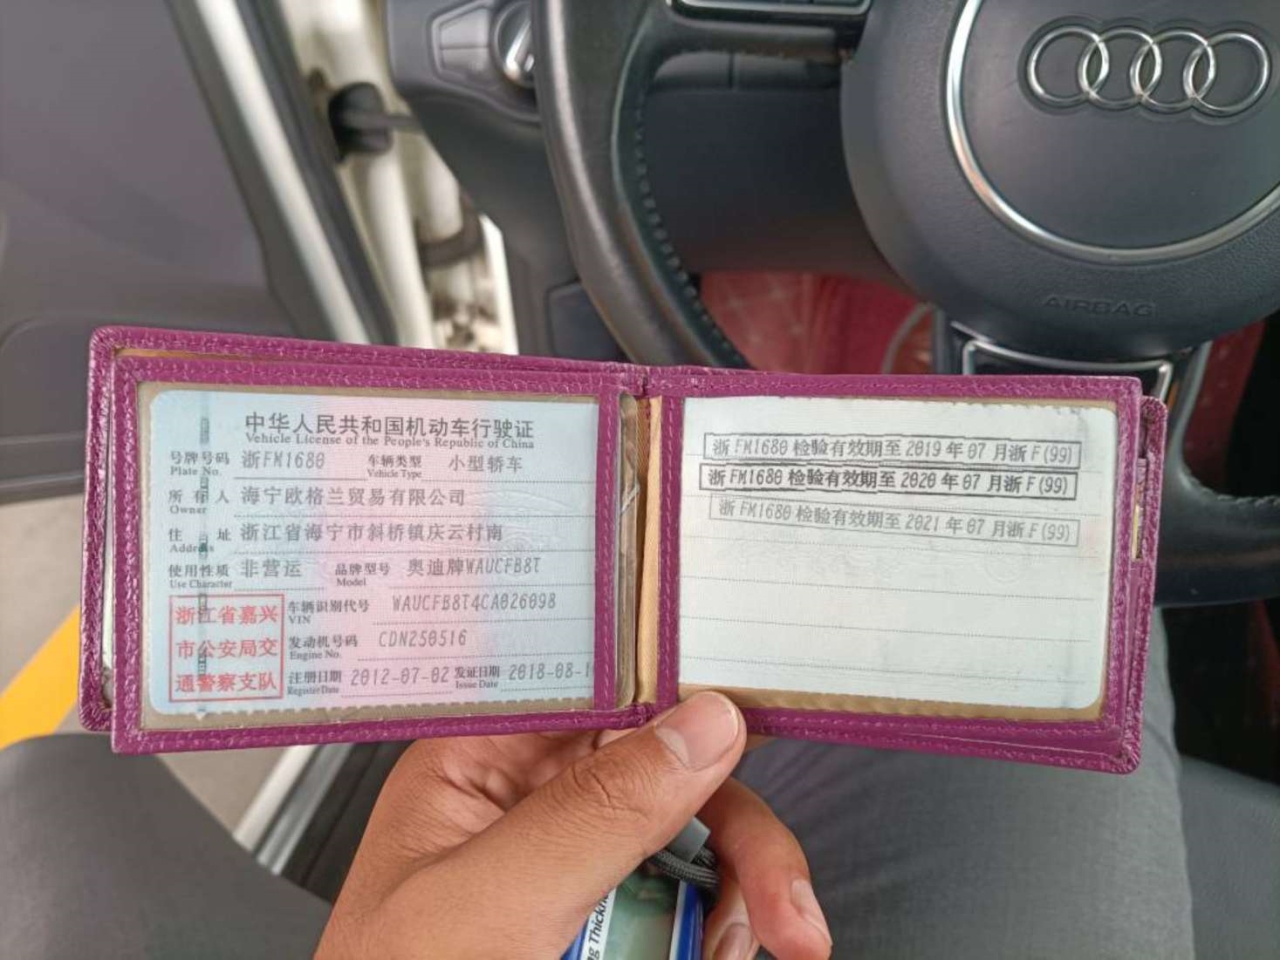 中华人民共和国机动车行驶证
Vehicle License of the People's Republic of China
号牌号码 浙FM1680 车辆类型 小型轿车
Plate No. Vehicle Type
所有人 海宁欧格兰贸易有限公司
Owner
住址 浙江省海宁市斜桥镇庆云村南
Address
使用性质 非营运 品牌型号 奥迪牌WAUCFB8T
Use Character Model
浙江省嘉兴
市公安局交
通警察支队
车辆识别代号 WAUCFB8T4CA026098
VIN
发动机号码 CDN250516
Engine No.
注册日期 2012-07-02 发证日期 2018-08-1
Register Date Issue Date
浙FM1680检验有效期至2019年07月浙F(99)
浙FM1680检验有效期至2020年07月浙F(99)
浙FM1680检验有效期至2021年07月浙F(99)
AIRBAG